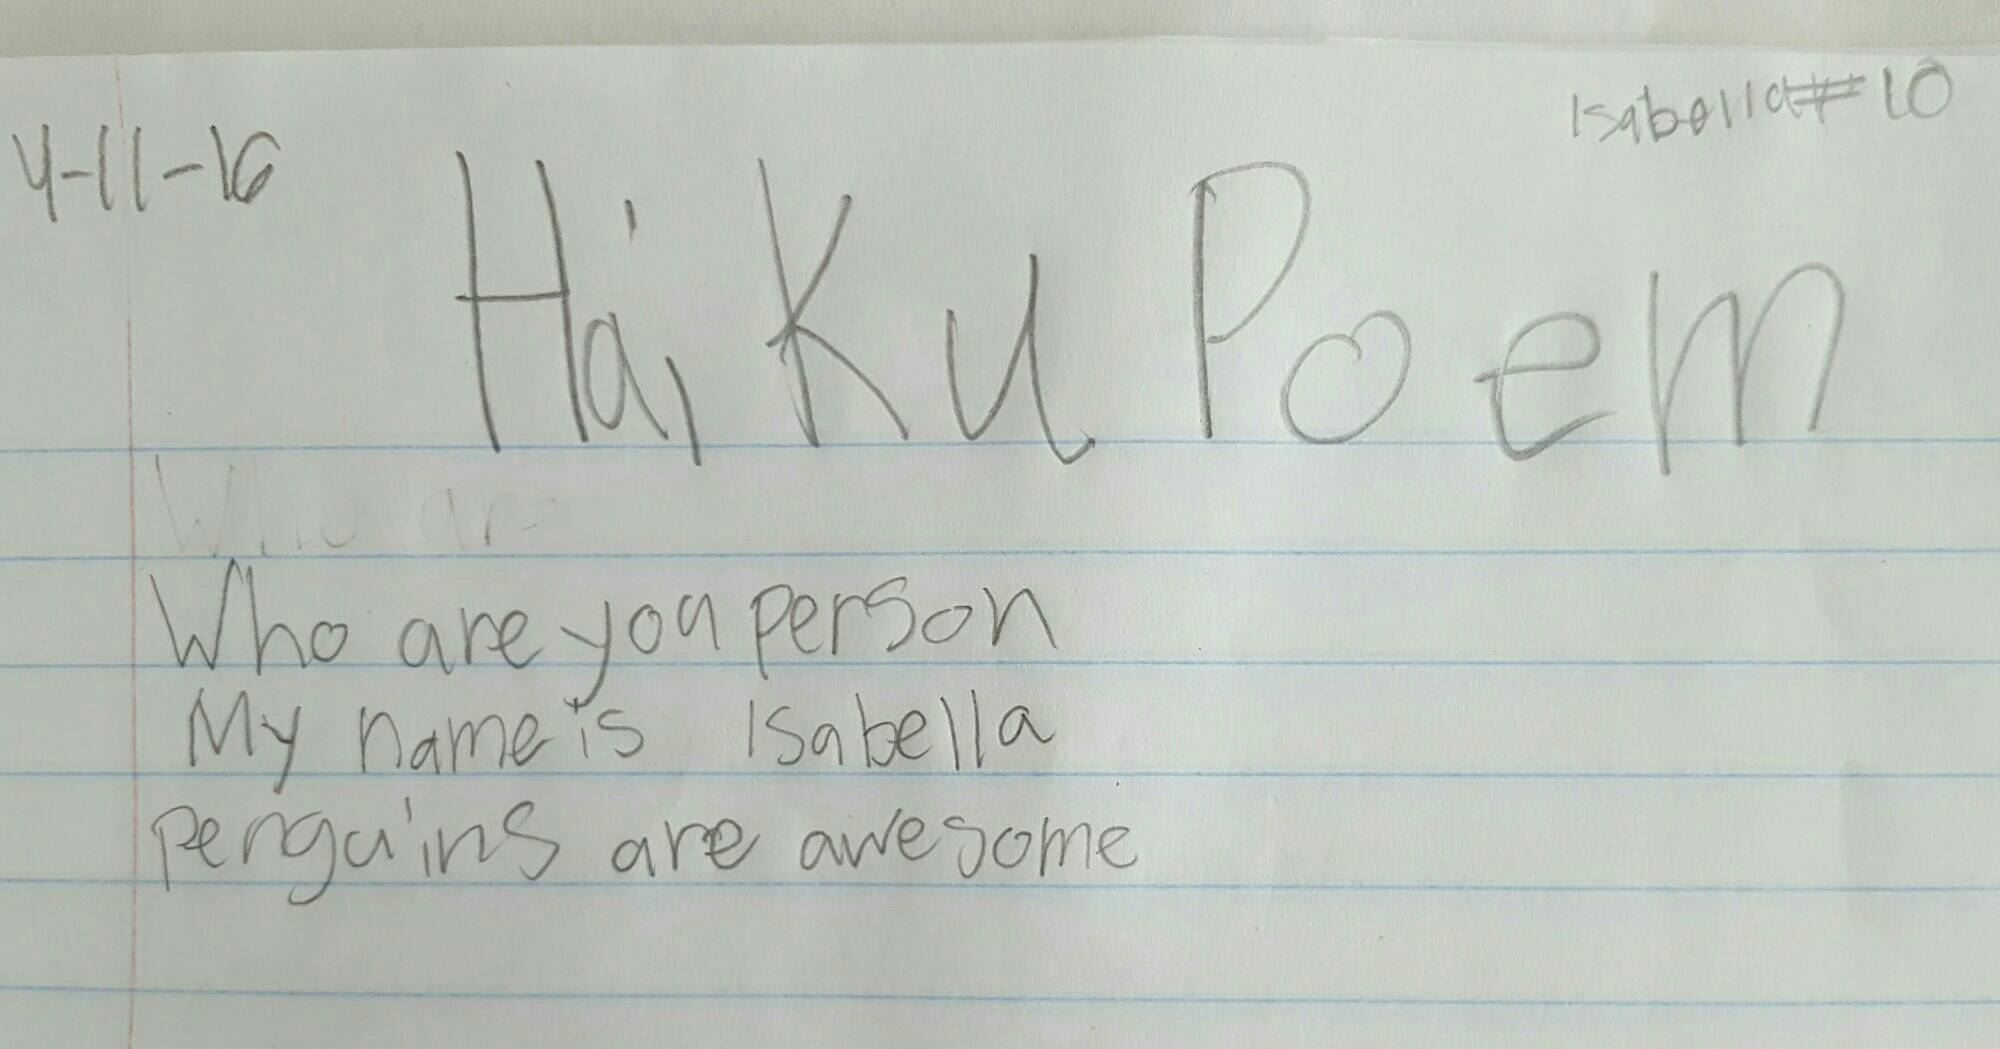 Isabella#10
4-11-16
Haiku Poem
Who are
Who are you person
My name is Isabella
Penguins are awesome